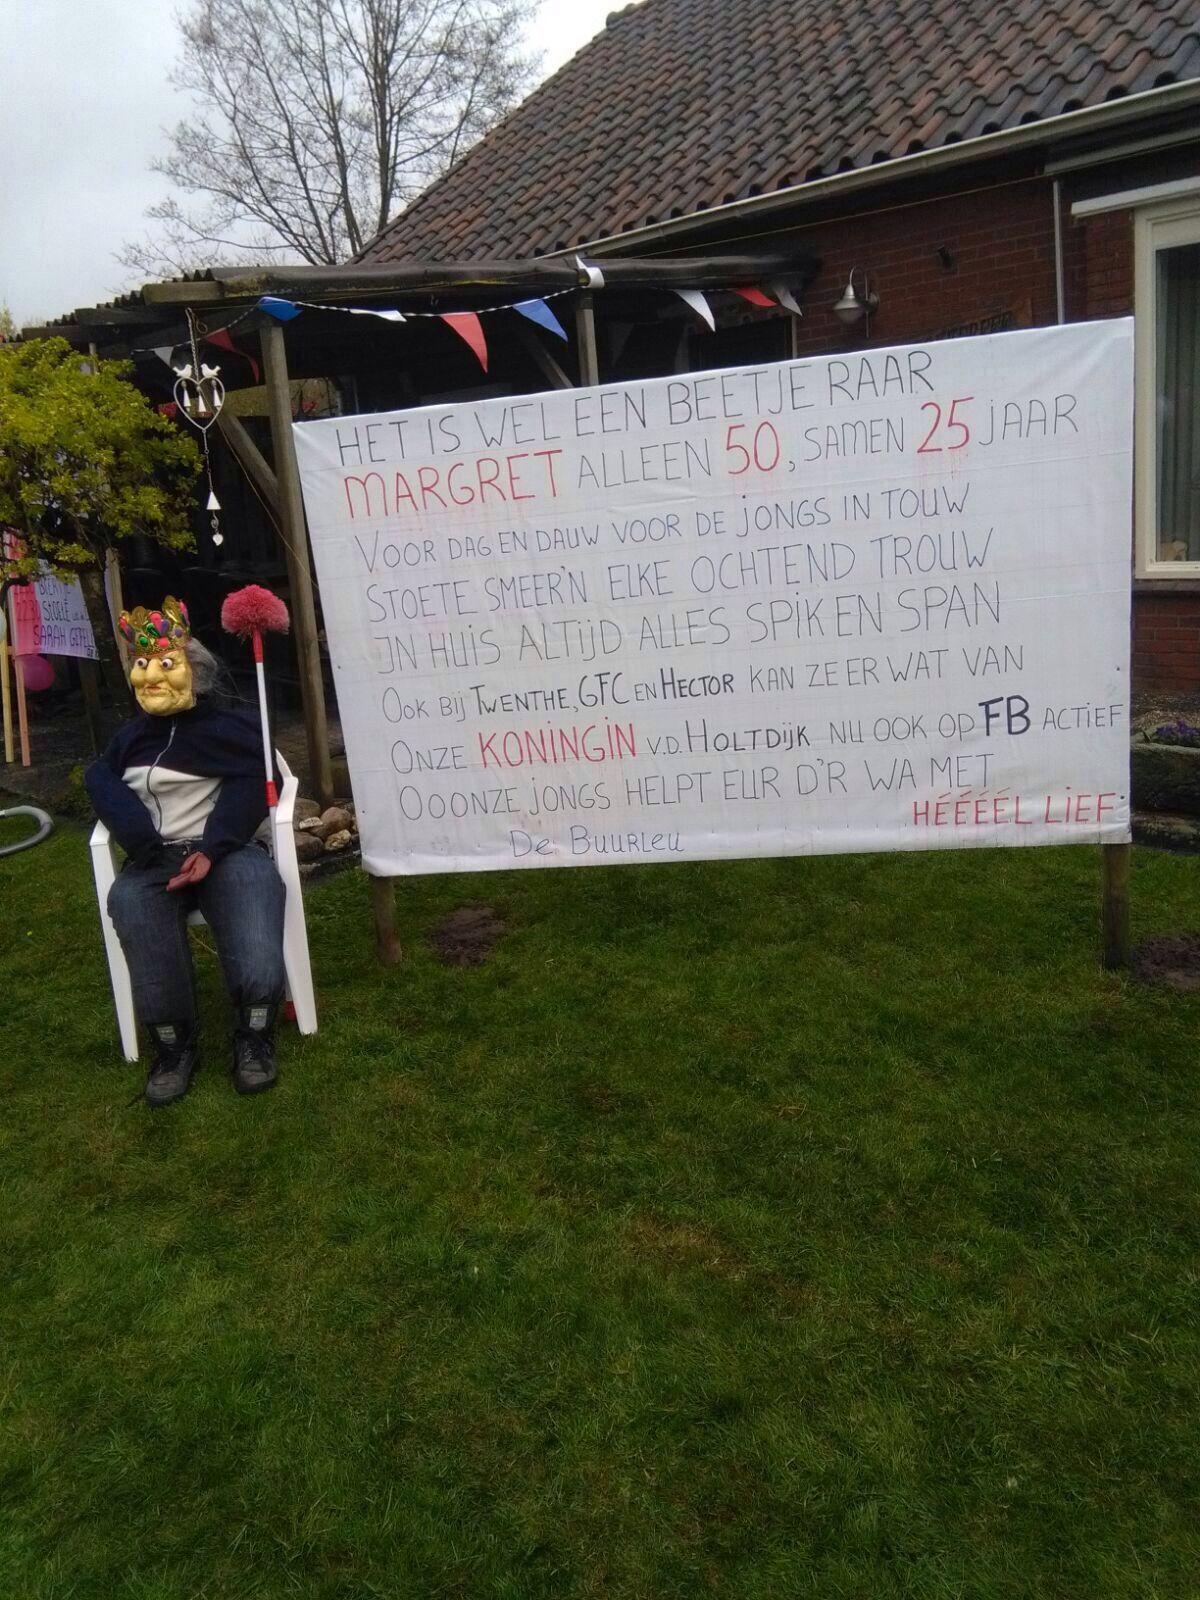 HET IS WEL EEN BEETJE RAAR
MARGRET ALLEEN 50, SAMEN 25 JAAR
VOOR DAG EN DAUW VOOR DE JONGS IN TOUW
STOETE SMEER'N ELKE OCHTEND TROUW
IN HUIS ALTIJD ALLES SPIK EN SPAN
OOK BIJ TWENTHE, GFC EN HECTOR KAN ZE ER WAT VAN
ONZE KONINGIN V.D. HOLTDIJK NU OOK OP FB ACTIEF
OOONZE JONGS HELPT EUR D'R WA MET
HÉÉÉÉL LIEF
De Buurleu
STOELE
SARAH